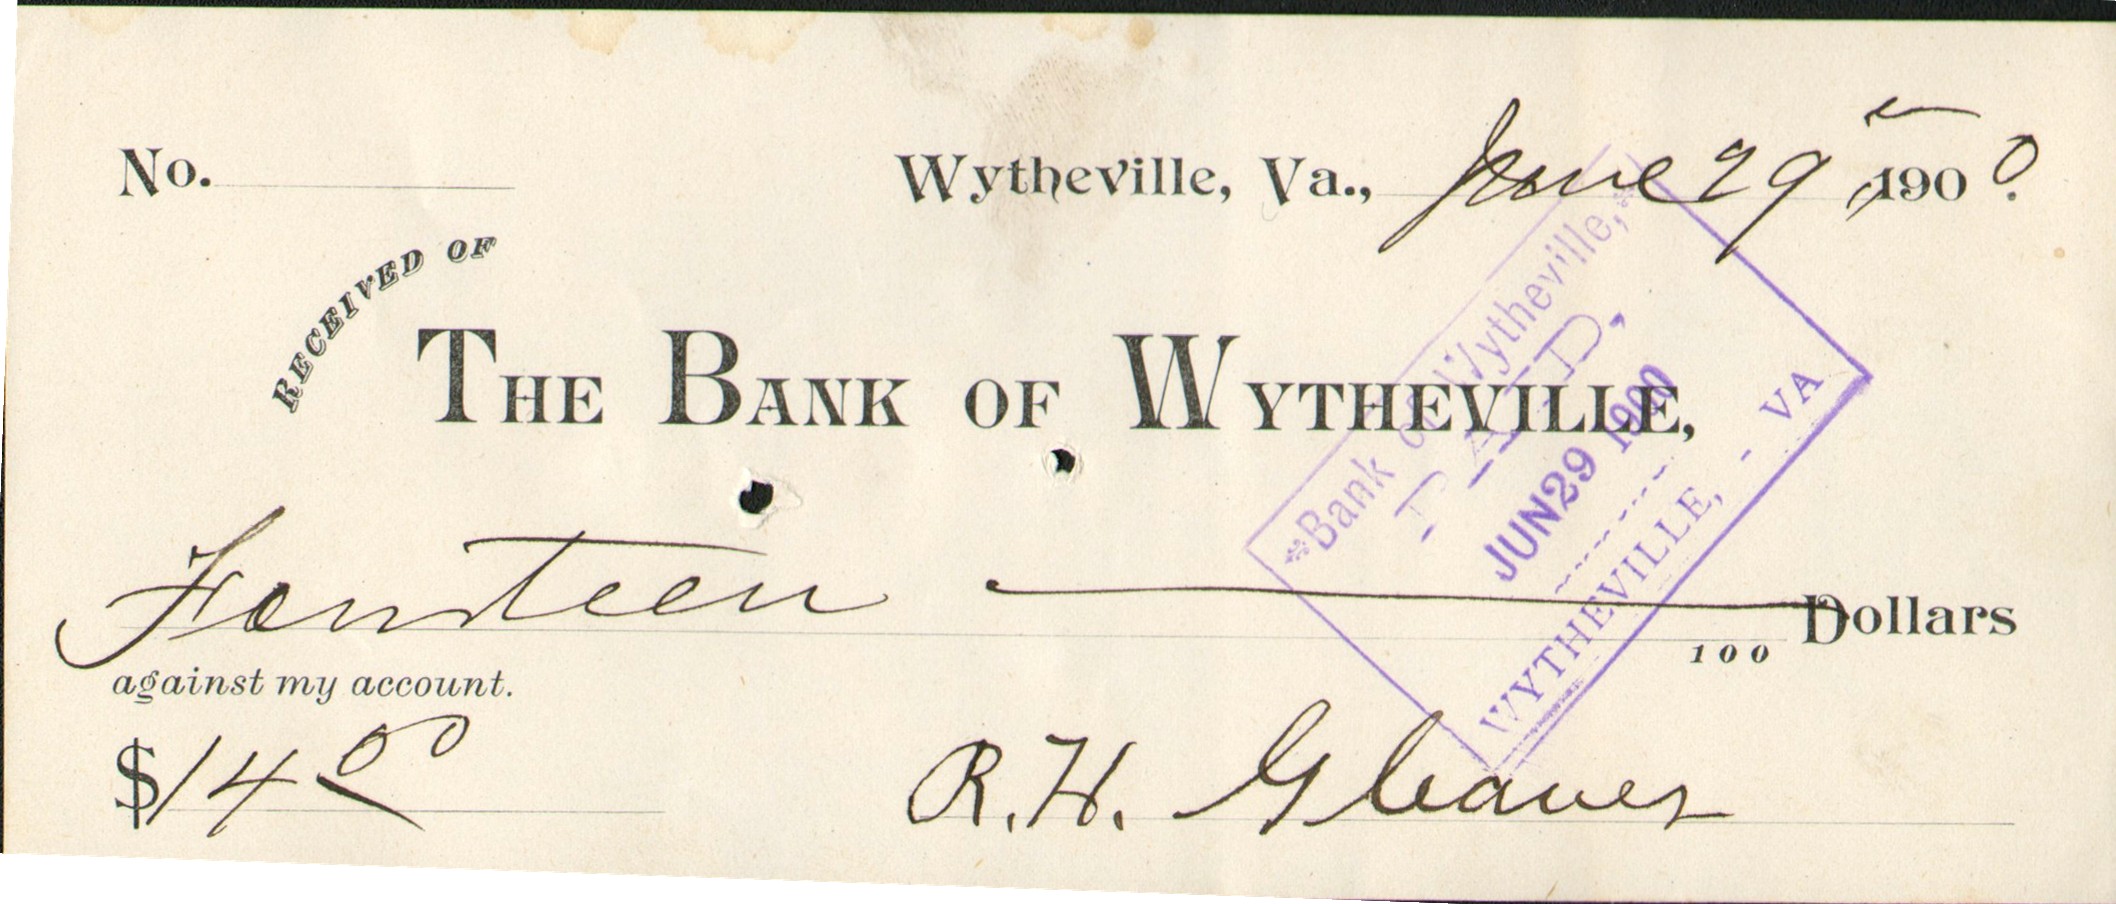 No.
Wytheville, Va., June 29th, 1900.
RECEIVED OF
THE BANK OF WYTHEVILLE,
Fourteen Dollars
100
against my account.
$14 00
R. H. Gleaves
*Bank of Wytheville,*
PAID,
JUN 29 1900
WYTHEVILLE, - VA